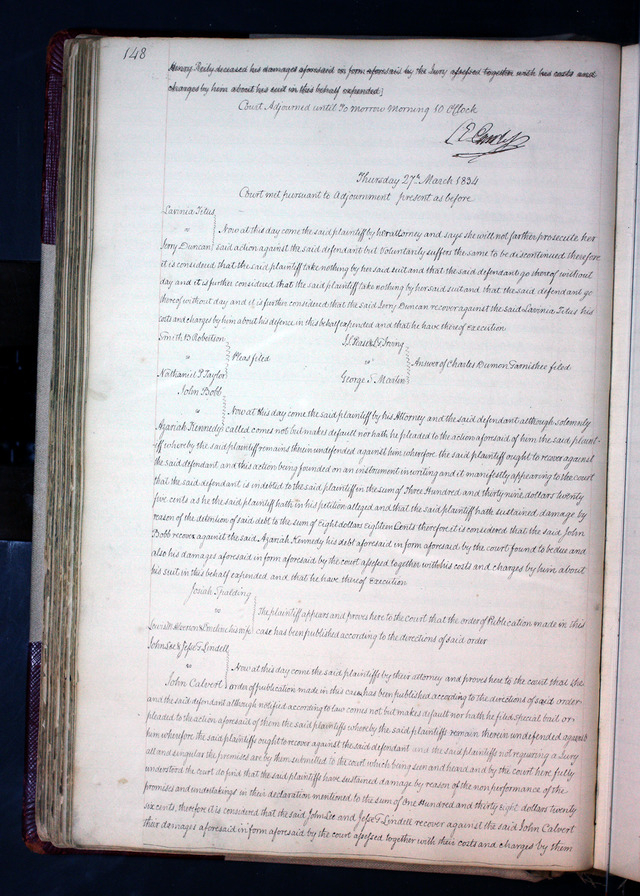 148
Henry Reily deceased his damages aforesaid in form aforesaid by the Jury assessed together with his costs and
charges by him about his suit in this behalf expended
Court Adjourned until To Morrow Morning 10 OClock
Thursday 27th March 1834
Court met pursuant to Adjournment present as before
Lavinia Titus
vs
Jerry Duncan
Now at this day come the said plaintiff by her attorney and says she will not farther prosecute her
said action against the said defendant but Voluntarily suffers the same to be discontinued therefore
it is considered that the said plaintiff take nothing by her said suit and that the said defendant go thereof without
day and it is further considered that the said plaintiff take nothing by her said suit and that the said defendant go
thereof without day and it is further considered that the said Jerry Duncan recover against the said Lavinia Titus his
costs and charges by him about his defence in this behalf expended and that he have thereof Execution
Smith & Robertson
vs
Nathaniel P Taylor
Pleas filed
Irving
vs
George S. Martin
Answer of Charles Dumon Garnishee filed
John Bobb
vs
Azariah Kennedy
Now at this day come the said plaintiff by his Attorney and the said defendant although solemnly
called comes not but makes default nor hath he pleaded to the action aforesaid of him the said plaint-
iff whereby the said plaintiff remains therein undefended against him wherefore the said plaintiff ought to recover against
the said defendant and this action being founded on an instrument in writing and it manifestly appearing to the court
that the said defendant is indebted to the said plaintiff in the sum of Three Hundred and thirty nine dollars twenty
five cents as he the said plaintiff hath in his petition alleged and that the said plaintiff hath sustained damage by
reason of the detention of said debt to the sum of Eight dollars Eighteen Cents therefore it is considered that the said John
Bobb recover against the said Azariah Kennedy his debt aforesaid in form aforesaid by the court found to be due and
also his damages aforesaid in form aforesaid by the court assessed together with his costs and charges by him about
his suit in this behalf expended and that he have thereof Execution
Josiah Spalding
vs
his wife
The plaintiff appears and proves here to the court that the order of Publication made in this
case has been published according to the directions of said order
John Lee & Jesse G Lindell
vs
John Calvert
Now at this day come the said plaintiffs by their attorney and proves here to the court that the
order of publication made in this case has been published according to the directions of said order
and the said defendant although notified according to law comes not but makes default nor hath he filed special bail or
pleaded to the action aforesaid of them the said plaintiffs whereby the said plaintiffs remain therein undefended against
him wherefore the said plaintiffs ought to recover against the said defendant and the said plaintiffs not requiring a Jury
all and singular the premises are by them submitted to the court which being seen and heard and by the court here fully
understood the court do find that the said plaintiffs have sustained damage by reason of the non performance of the
promises and undertakings in their declaration mentioned to the sum of One Hundred and thirty Eight dollars twenty
six cents, therefore it is considered that the said John Lee and Jesse G Lindell recover against the said John Calvert
their damages aforesaid in form aforesaid by the court assessed together with their costs and charges by them